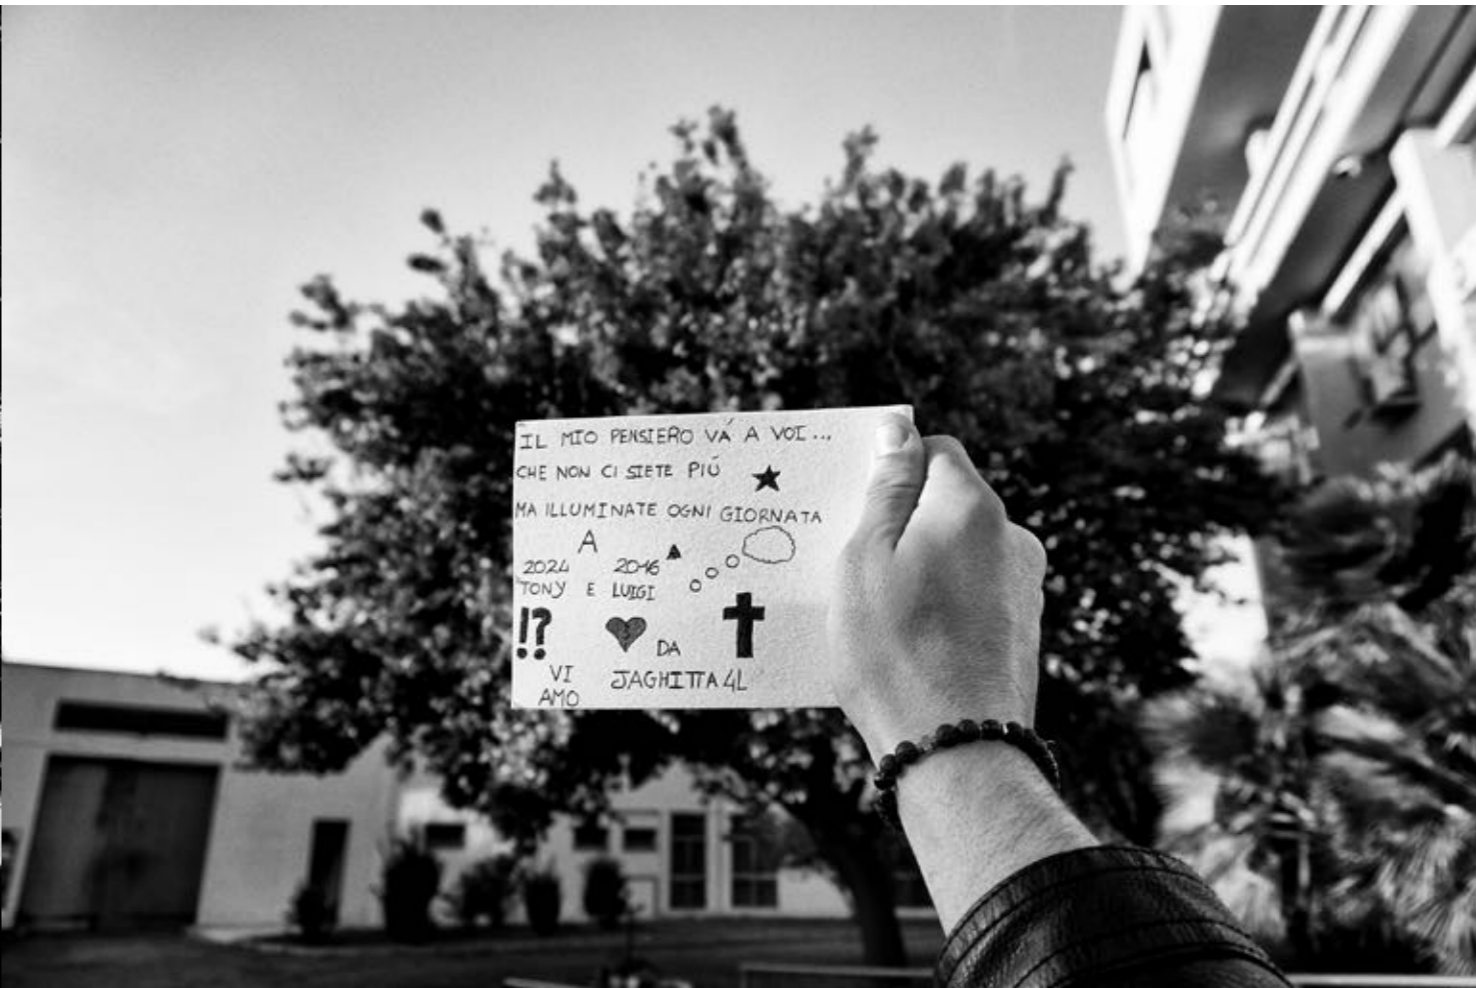 IL MIO PENSIERO VÁ A VOI...
CHE NON CI SIETE PIÚ
MA ILLUMINATE OGNI GIORNATA
A
2024 2016
TONY E LUIGI
!?
DA
VI JAGHITTA 4L
AMO